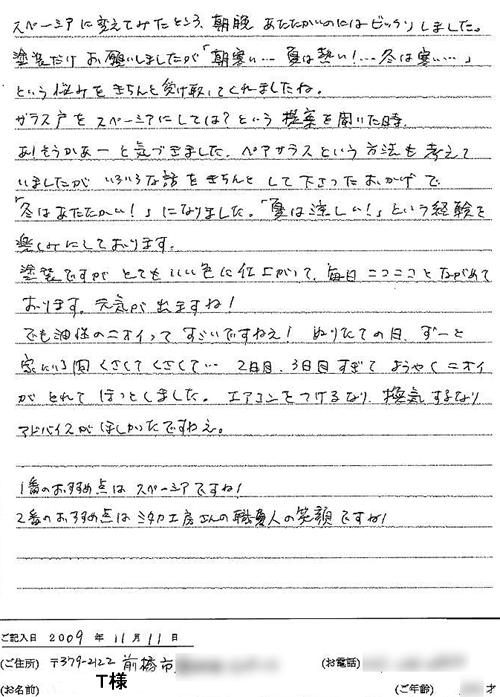 スペーシアに変えてみたところ、朝晩あたたかいのにはビックリしました。
塗装だけお願いしましたが「朝寒い…夏は熱い!…冬は寒い…」
という悩みをきちんと受け取ってくれましたね。
ガラス戸をスペーシアにしては?という提案を聞いた時、
あ!そうかあーと気づきました。ペアガラスという方法も考えて
いましたがいろいろな話をきちんとして下さったおかげで
「冬はあたたかい!」になりました。「夏は涼しい!」という経験を
楽しみにしております。
塗装ですがとてもいい色に仕上がって、毎日ニコニコとながめて
おります。元気が出ますね!
でも油性のニオイってすごいですねえ!ぬりたての日、ずーと
家にいる間くさくてくさくて…2日目、3日目すぎてようやくニオイ
がとれてほっとしました。エアコンをつけるなり、換気するなり
アドバイスがほしかったですねえ。
1番のおすすめ点はスペーシアですね!
2番のおすすめ点はミタカ工房さんの職人の笑顔ですね!
ご記入日 2009 年 11月 11日
(ご住所) 〒379-2122 前橋市 (お電話)
(お名前) T様 (ご年齢) 才